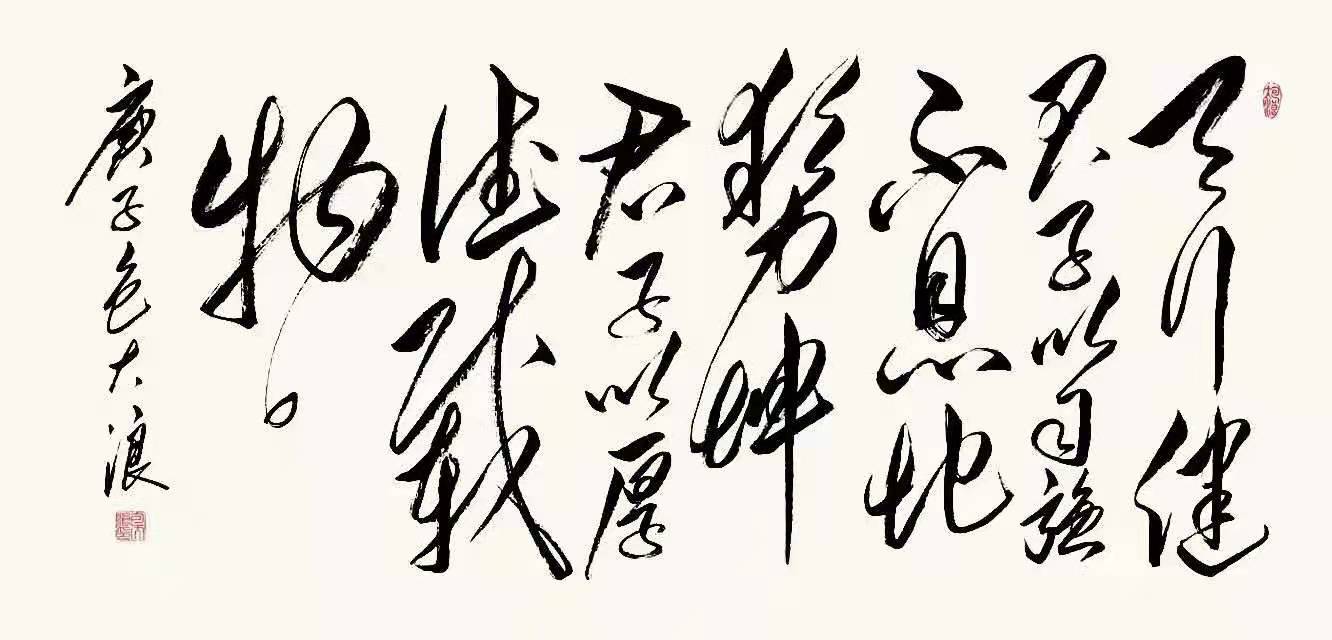 天行健
君子以自强
不息地
势坤
君子以厚
德载
物
庚子包大浪